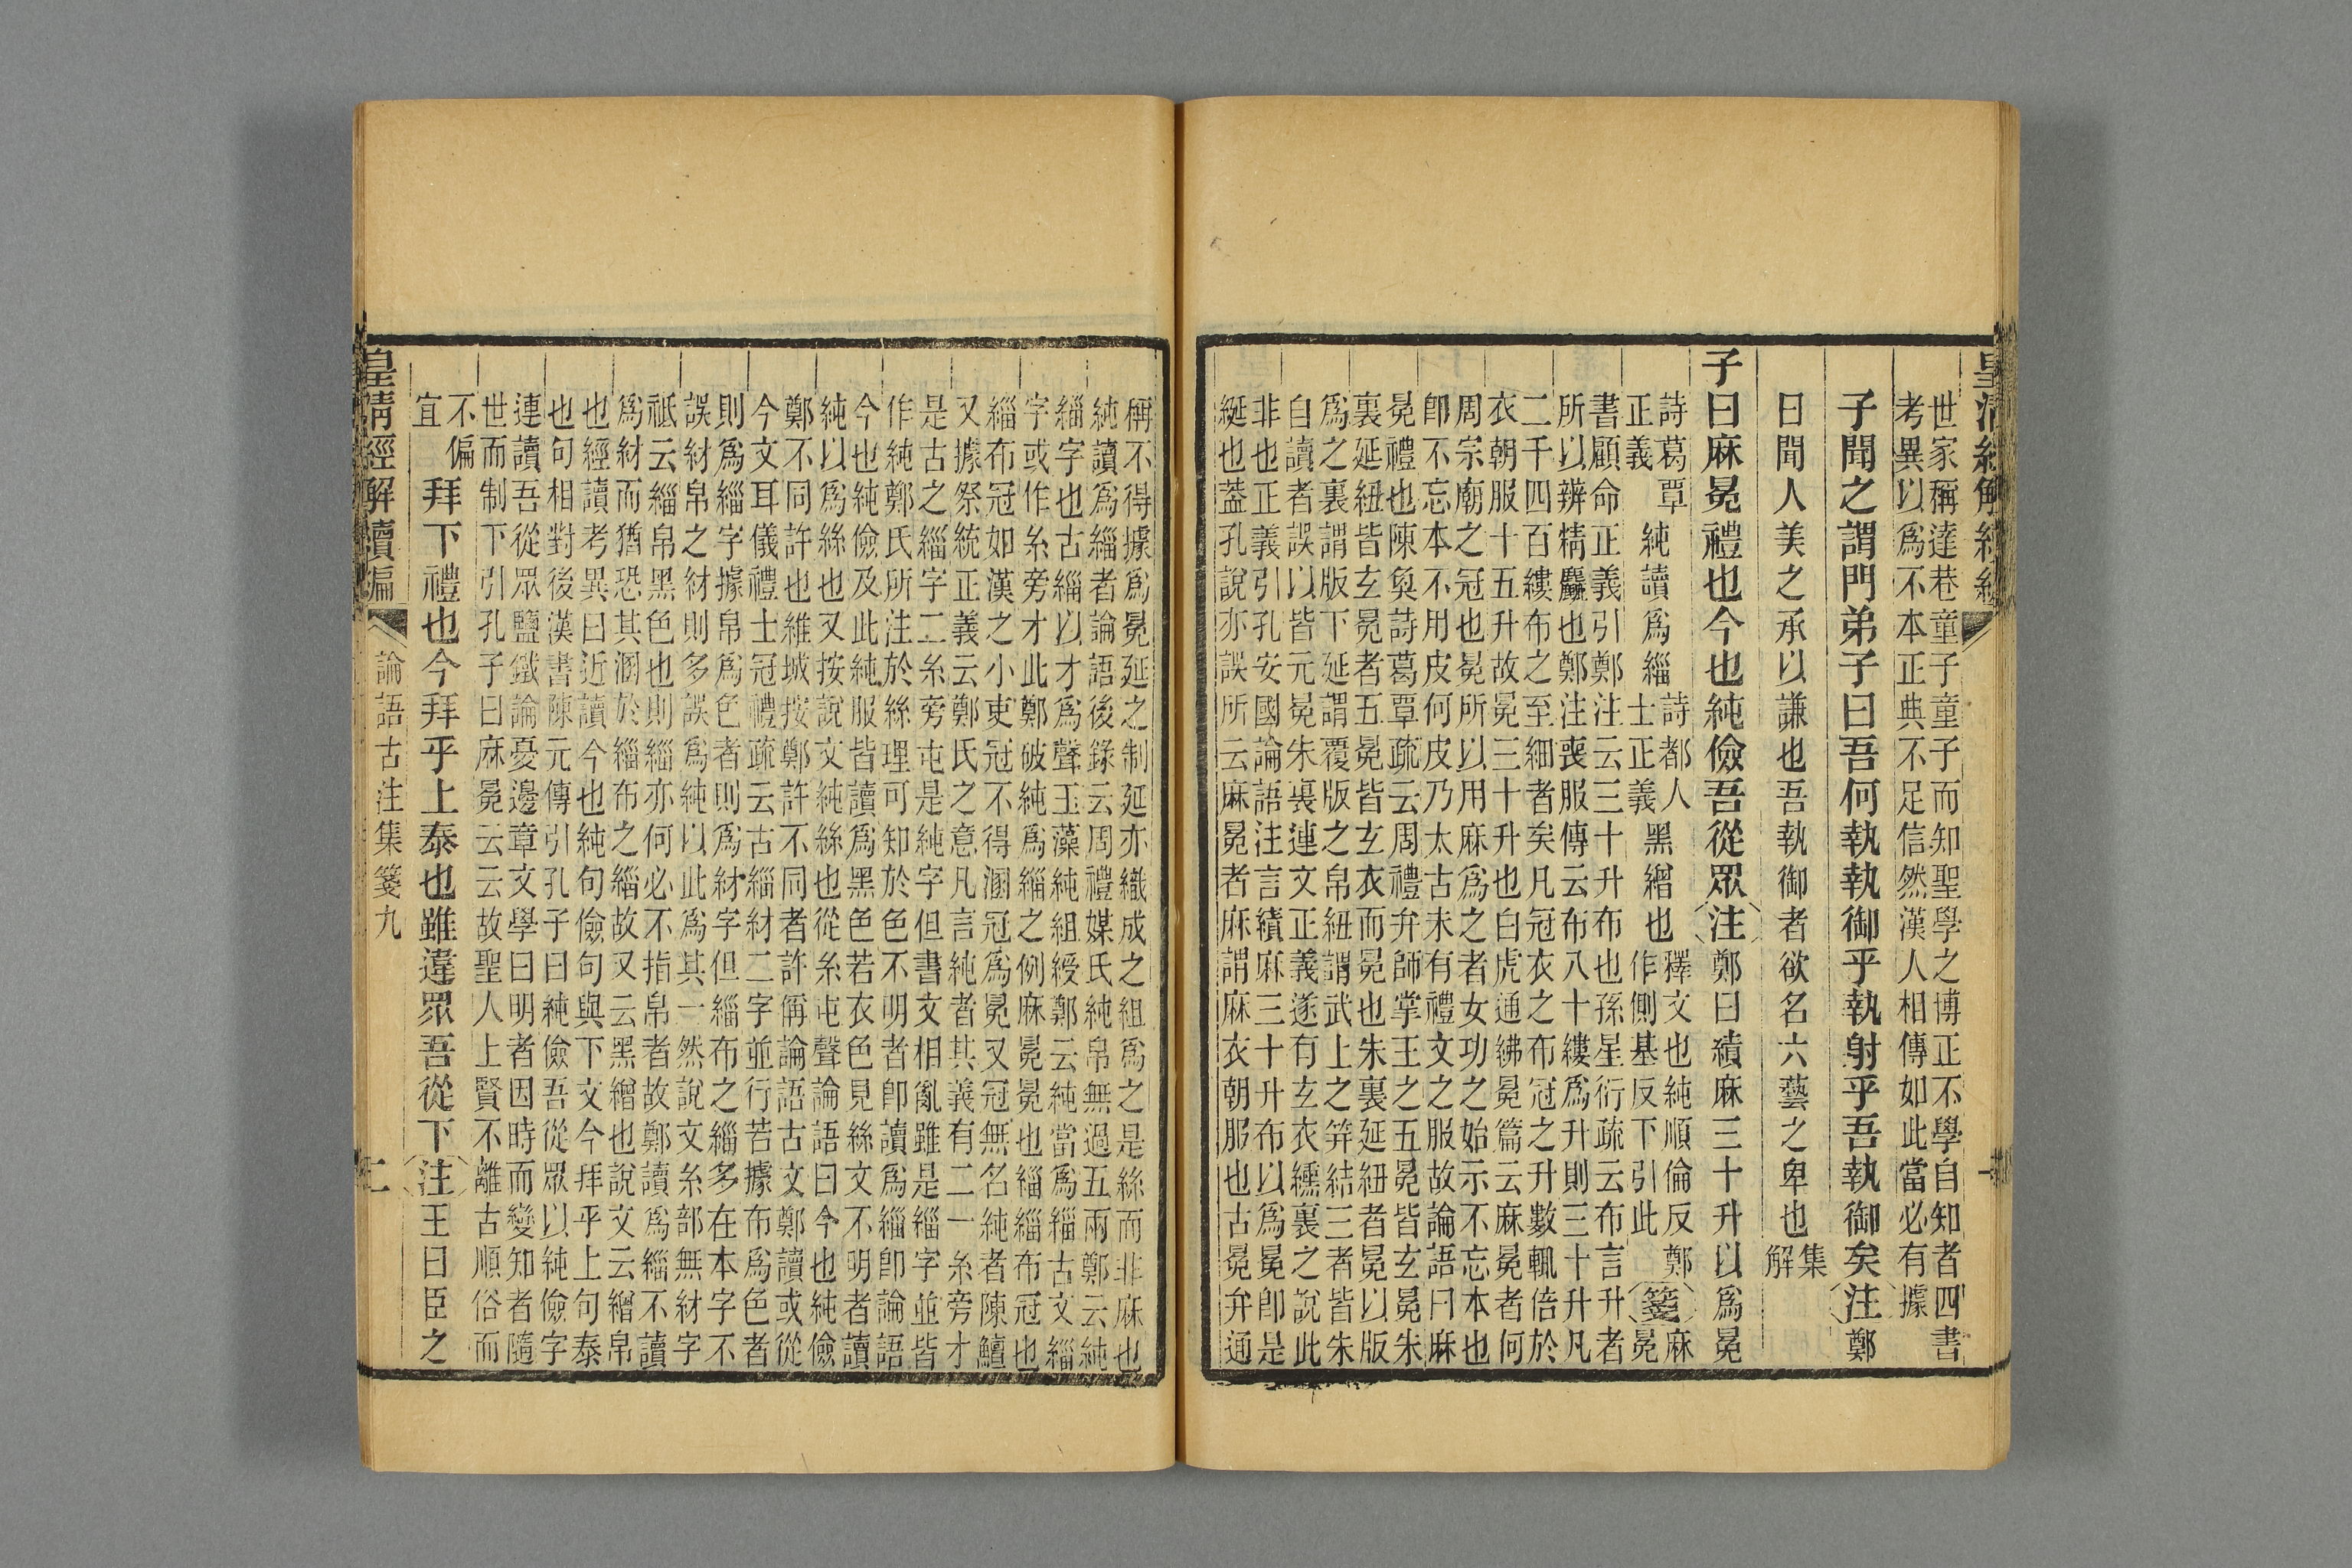 皇清經解續編 一
世家稱達巷童子童子而知聖學之博正不學自知者四書
考異以爲不本正典不足信然漢人相傳如此當必有據
子聞之謂門弟子曰吾何執執御乎執射乎吾執御矣注鄭
曰聞人美之承以謙也吾執御者欲名六藝之卑也集解
子曰麻冕禮也今也純儉吾從眾注鄭曰績麻三十升以爲冕
詩葛覃正義純讀爲緇詩都人士正義黑繒也釋文也純順倫反鄭作側基反下引此箋麻冕
書顧命正義引鄭注云三十升布也孫星衍疏云布言升者
所以辨精麤也鄭注喪服傳云布八十縷爲升則三十升凡
二千四百縷布之至細者矣凡冠衣之布冠之升數輒倍於
衣朝服十五升故冕三十升也白虎通紼冕篇云麻冕者何
周宗廟之冠也冕所以用麻爲之者女功之始示不忘本也
卽不忘本不用皮何皮乃太古未有禮文之服故論語曰麻
冕禮也陳奐詩葛覃疏云周禮弁師掌王之五冕皆玄冕朱
裏延紐皆玄冕者五冕皆玄衣而冕也朱裏延紐者冕以版
爲之裏謂版下延謂覆版之帛紐謂武上之筓結三者皆朱
自讀者誤以皆元冕朱裏連文正義遂有玄衣纁裏之說此
非也正義引孔安國論語注言績麻三十升布以爲冕卽是
綖也蓋孔說亦誤所云麻冕者麻謂麻衣朝服也古冕弁通
稱不得據爲冕延之制延亦織成之組爲之是絲而非麻也
純讀爲緇者論語後錄云周禮媒氏純帛無過五兩鄭云純
緇字也古緇以才爲聲玉藻純組綬鄭云純當爲緇古文緇
字或作糸旁才此鄭破純爲緇之例麻冕冕也緇緇布冠也
緇布冠如漢之小吏冠不得溷冠爲冕又冠無名純者陳鱣
又據祭統正義云鄭氏之意凡言純者其義有二一糸旁才
是古之緇字二糸旁屯是純字但書文相亂雖是緇字並皆
作純鄭氏所注於絲理可知於色不明者卽讀爲緇卽論語
今也純儉及此純服皆讀爲黑色若衣色見絲文不明者讀
純以爲絲也又按說文純絲也從糸屯聲論語曰今也純儉
鄭不同許也維城按鄭許不同者許偁論語古文鄭讀或從
今文耳儀禮士冠禮疏云古緇䊷二字並行若據布爲色者
則爲緇字據帛爲色者則爲䊷字但緇布之緇多在本字不
誤䊷帛之䊷則多誤爲純以此爲其一然說文糸部無䊷字
祗云緇帛黑色也則緇亦何必不指帛者故鄭讀爲緇不讀
爲䊷而猶恐其溷於緇布之緇故又云黑繒也說文云繒帛
也經讀考異曰近讀今也純句儉句與下文今拜乎上句泰
也句相對後漢書陳元傳引孔子曰純儉吾從眾以純儉字
連讀吾從眾鹽鐵論憂邊章文學曰明者因時而變知者隨
世而制下引孔子曰麻冕云云故聖人上賢不離古順俗而
不偏宜拜下禮也今拜乎上泰也雖違眾吾從下注王曰臣之
皇清經解續編 論語古注集箋九 二